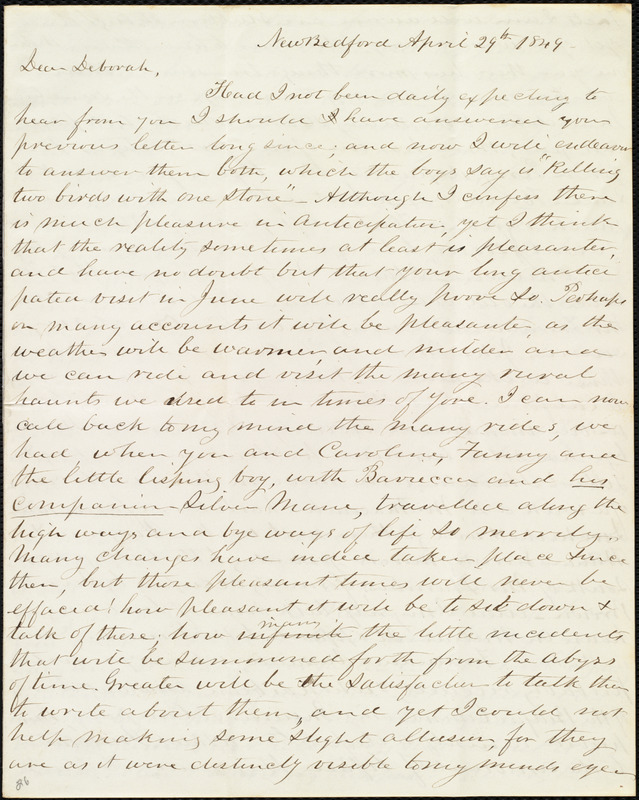 New Bedford April 29th 1849-
Dear Deborah,
Had I not been daily expecting to
hear from you I should & have answered your
previous letter long since; and now I will endeavor
to answer them both, which the boys say is "Killing
two birds with one stone"- Although I confess there
is much pleasure in anticipation, yet I think
that the reality sometimes at least is pleasanter,
and have no doubt but that your long antici
pated visit in June will really proove so. Perhaps
on many accounts it will be pleasanter, as the
weather will be warmer, and milder, and
we can ride and visit the many rural
haunts we used to in times of yore. I can now
call back to my mind the many rides, we
had when you and Caroline, Fanny and
the little lisping boy, with Bavieca and his
companion Silver Mane, travelled along the
high ways and bye ways of life so merrily.
Many changes have indeed taken place since
then, but those pleasant times will never be
effaced! how pleasant it will be to sit down &
talk of these; how many
infinite the little incidents
that will be summoned forth from the abyss
of time. Greater will be the satisfaction to talk than
to write about them, and yet I could not
help making some slight allusion, for they
are as it were distinctly visible to my minds eye.